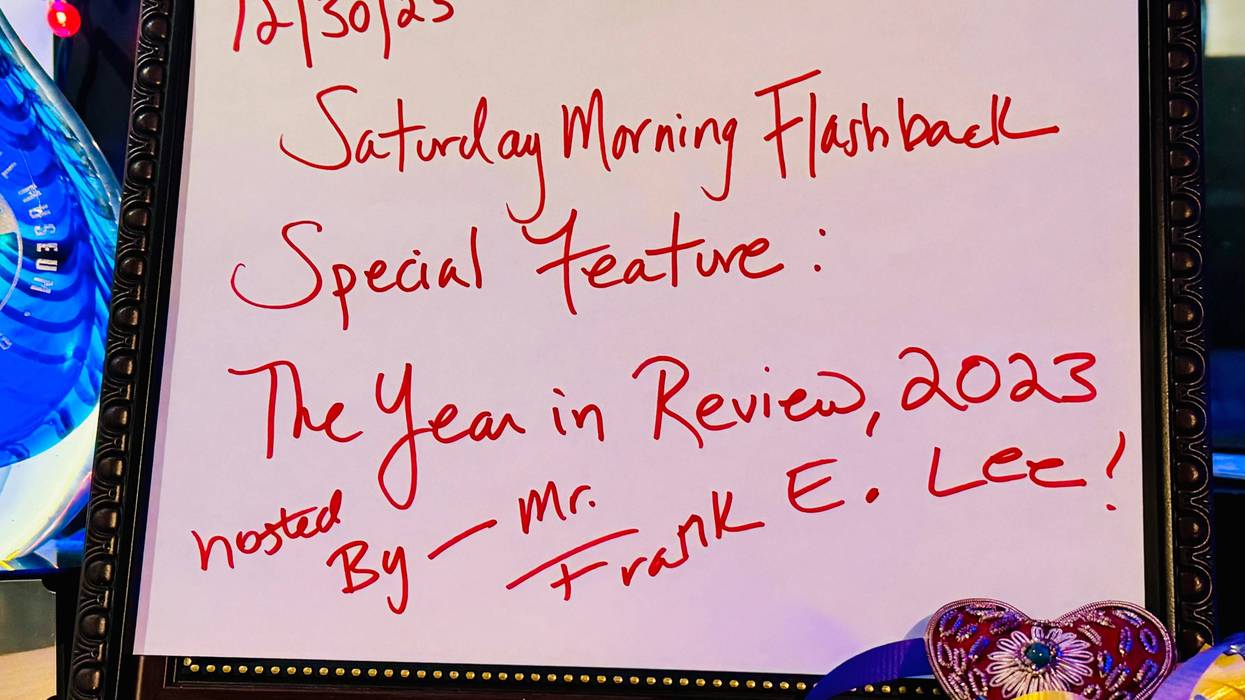 12/30/23
Saturday Morning Flashback
Special Feature:
The Year in Review, 2023
hosted By — Mr. Frank E. Lee!
MUSEUM